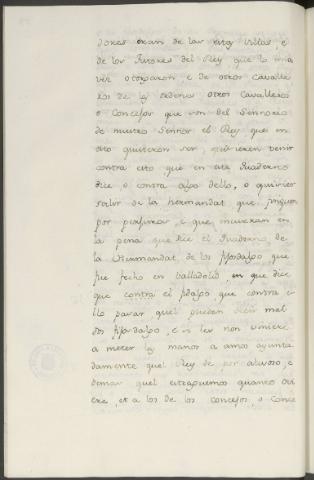 dores eran de las villas, e
de los Tutores del Rey que lo
ver otorgaron, e de otros Cavalle
ros de los ordenes otros Cavalleros
o Concejos que son del Señorio
de nuestro Señor el Rey que en
esto quisieren ser quisieren venir
contra esto que en este Quaderno
dice o contra algo dello, o quisier
salir de la hermandat que finquen
por perjuros, e que incurran en
la pena que dice el Quaderno de
la Hermandat de los fijosdalgo que
fue fecho en Valladolid, en que dice
que contra el fidalgo, que contra e
llo pasar quel puedan decir mal
los fijosdalgo, e si les non viniere
a meter las manos a amos ayunta
damente quel Rey de por alevoso, e
demas quel estraguemos quanto ovi
ere, et a los de los concejos, o Conce